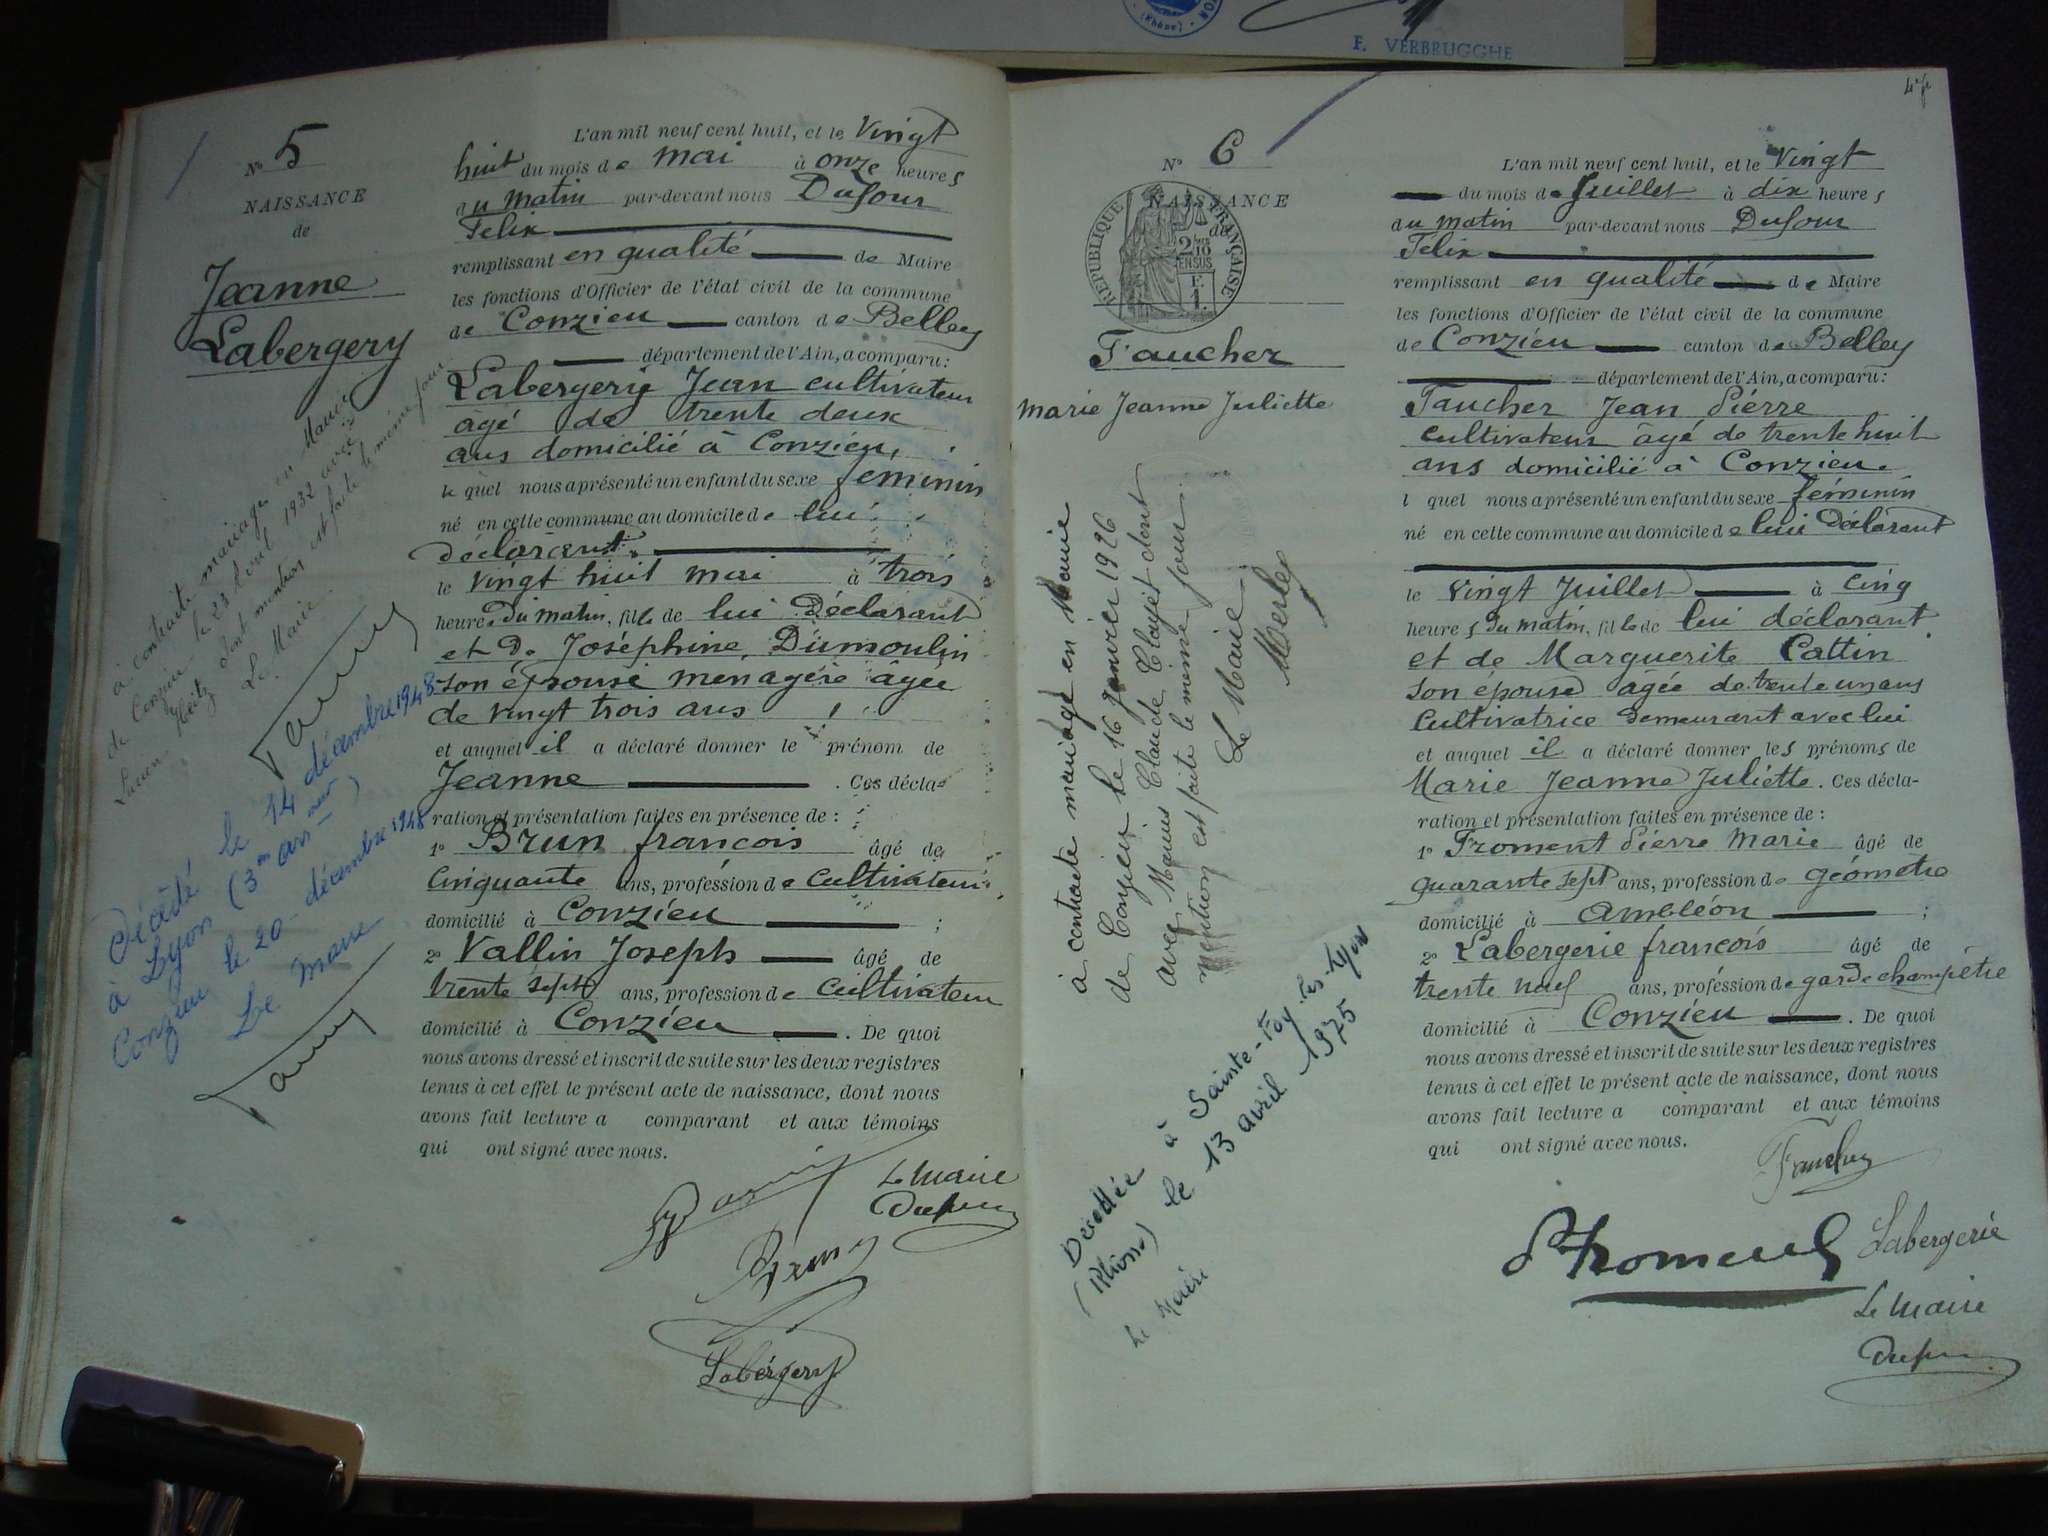 (Rhône)
F. VERBRUGGHE
N° 5
NAISSANCE
de
Jeanne
Labergery
à contracté mariage en Mairie
de Conzieu le 1932 avec
Lucien dont mention est faite le même jour
Le Maire
Tanny
Décédé le 14 décembre 1948
à Lyon (3em arr)
Conzieu le 20 décembre 1948
Le Maire
Tanny
L'an mil neuf cent huit, et le Vingt
huit du mois de mai à onze heures
du matin par-devant nous Dufour
Felix
remplissant en qualité de Maire
les fonctions d'Officier de l'état civil de la commune
de Conzieu canton de Belley
département de l'Ain, a comparu:
Labergerie Jean cultivateur
âgé de trente deux
ans domicilié à Conzieu,
le quel nous a présenté un enfant du sexe feminin
né en cette commune au domicile de lui
déclarant
le Vingt huit mai à trois
heures du matin, fille de lui Déclarant
et de Joséphine Dumoulin
son épouse menagère âgée
de vingt trois ans
et auquel il a déclaré donner le prénom de
Jeanne . Ces décla-
ration et présentation faites en présence de :
1° Brun francois âgé de
Cinquante ans, profession de Cultivateur
domicilié à Conzieu ;
2° Vallin Joseph âgé de
trente sept ans, profession de cultivateur
domicilié à Conzieu . De quoi
nous avons dressé et inscrit de suite sur les deux registres
tenus à cet effet le présent acte de naissance, dont nous
avons fait lecture a comparant et aux témoins
qui ont signé avec nous.
Le Maire
Dufour
Brun
Labergery
4e f
N° 6
NAISSANCE
de
RÉPUBLIQUE FRANÇAISE
2/10
EN SUS
Faucher
Marie Jeanne Juliette
à contracté mariage en Mairie
de Conzieu le 16 Janvier 1926
avec Marius Claude Clayet dont
mention est faite le même jour.
Le Maire
Merley
Décédée à Sainte-Foy-lès-Lyon
(Rhône) le 13 avril 1975
Le Maire
L'an mil neuf cent huit, et le Vingt
du mois de Juillet à dix heures
du matin par-devant nous Dufour
Félix
remplissant en qualité de Maire
les fonctions d'Officier de l'état civil de la commune
de Conzieu canton de Belley
département de l'Ain, a comparu:
Faucher Jean Pierre
cultivateur âgé de trente huit
ans domicilié à Conzieu.
l quel nous a présenté un enfant du sexe féminin
né en cette commune au domicile de lui Déclarant
le Vingt Juillet à Cinq
heures du matin, fille de lui déclarant
et de Marguerite Cattin
son épouse agée de trente un ans
Cultivatrice Demeurant avec lui
et auquel il a déclaré donner les prénoms de
Marie Jeanne Juliette. Ces décla-
ration et présentation faites en présence de :
1° Froment Pierre Marie âgé de
quarante sept ans, profession de géomètre
domicilié à Ambléon ;
2° Labergerie francois âgé de
trente neuf ans, profession de garde champêtre
domicilié à Conzieu . De quoi
nous avons dressé et inscrit de suite sur les deux registres
tenus à cet effet le présent acte de naissance, dont nous
avons fait lecture a comparant et aux témoins
qui ont signé avec nous.
Faucher
P Froment
Labergerie
Le Maire
Dufour